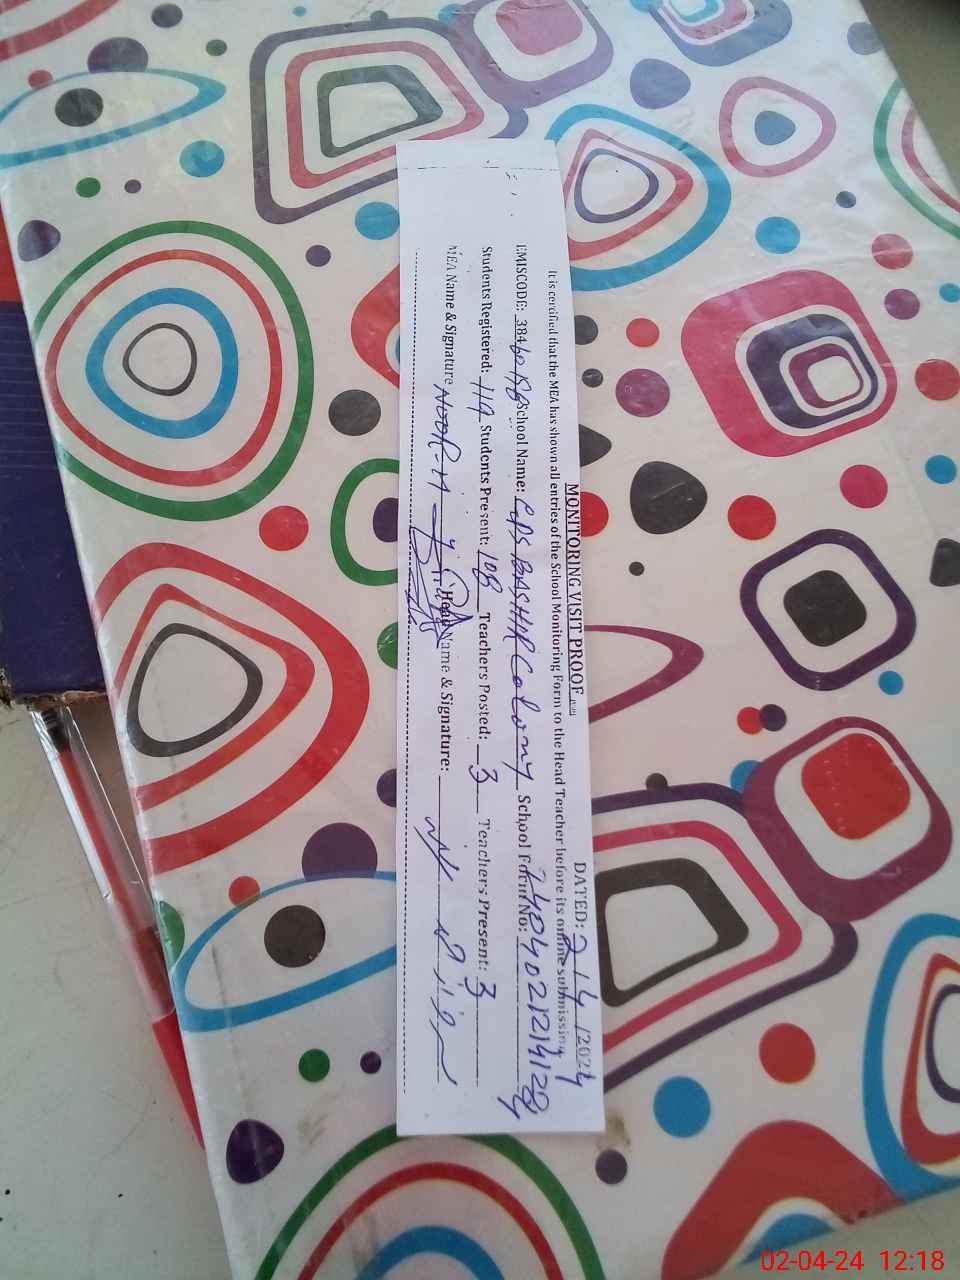 MONITORING VISIT PROOF DATED: 2/4/2024
It is certified that the MEA has shown all entries of the School Monitoring Form to the Head Teacher before its online submission
EMISCODE: 384 School Name: GPS BASHIR Colony School Form No:
Students Registered: 119 Students Present: 108 Teachers Posted: 3 Teachers Present: 3
MEA Name & Signature NOOR-M Head Name & Signature:
02-04-24 12:18